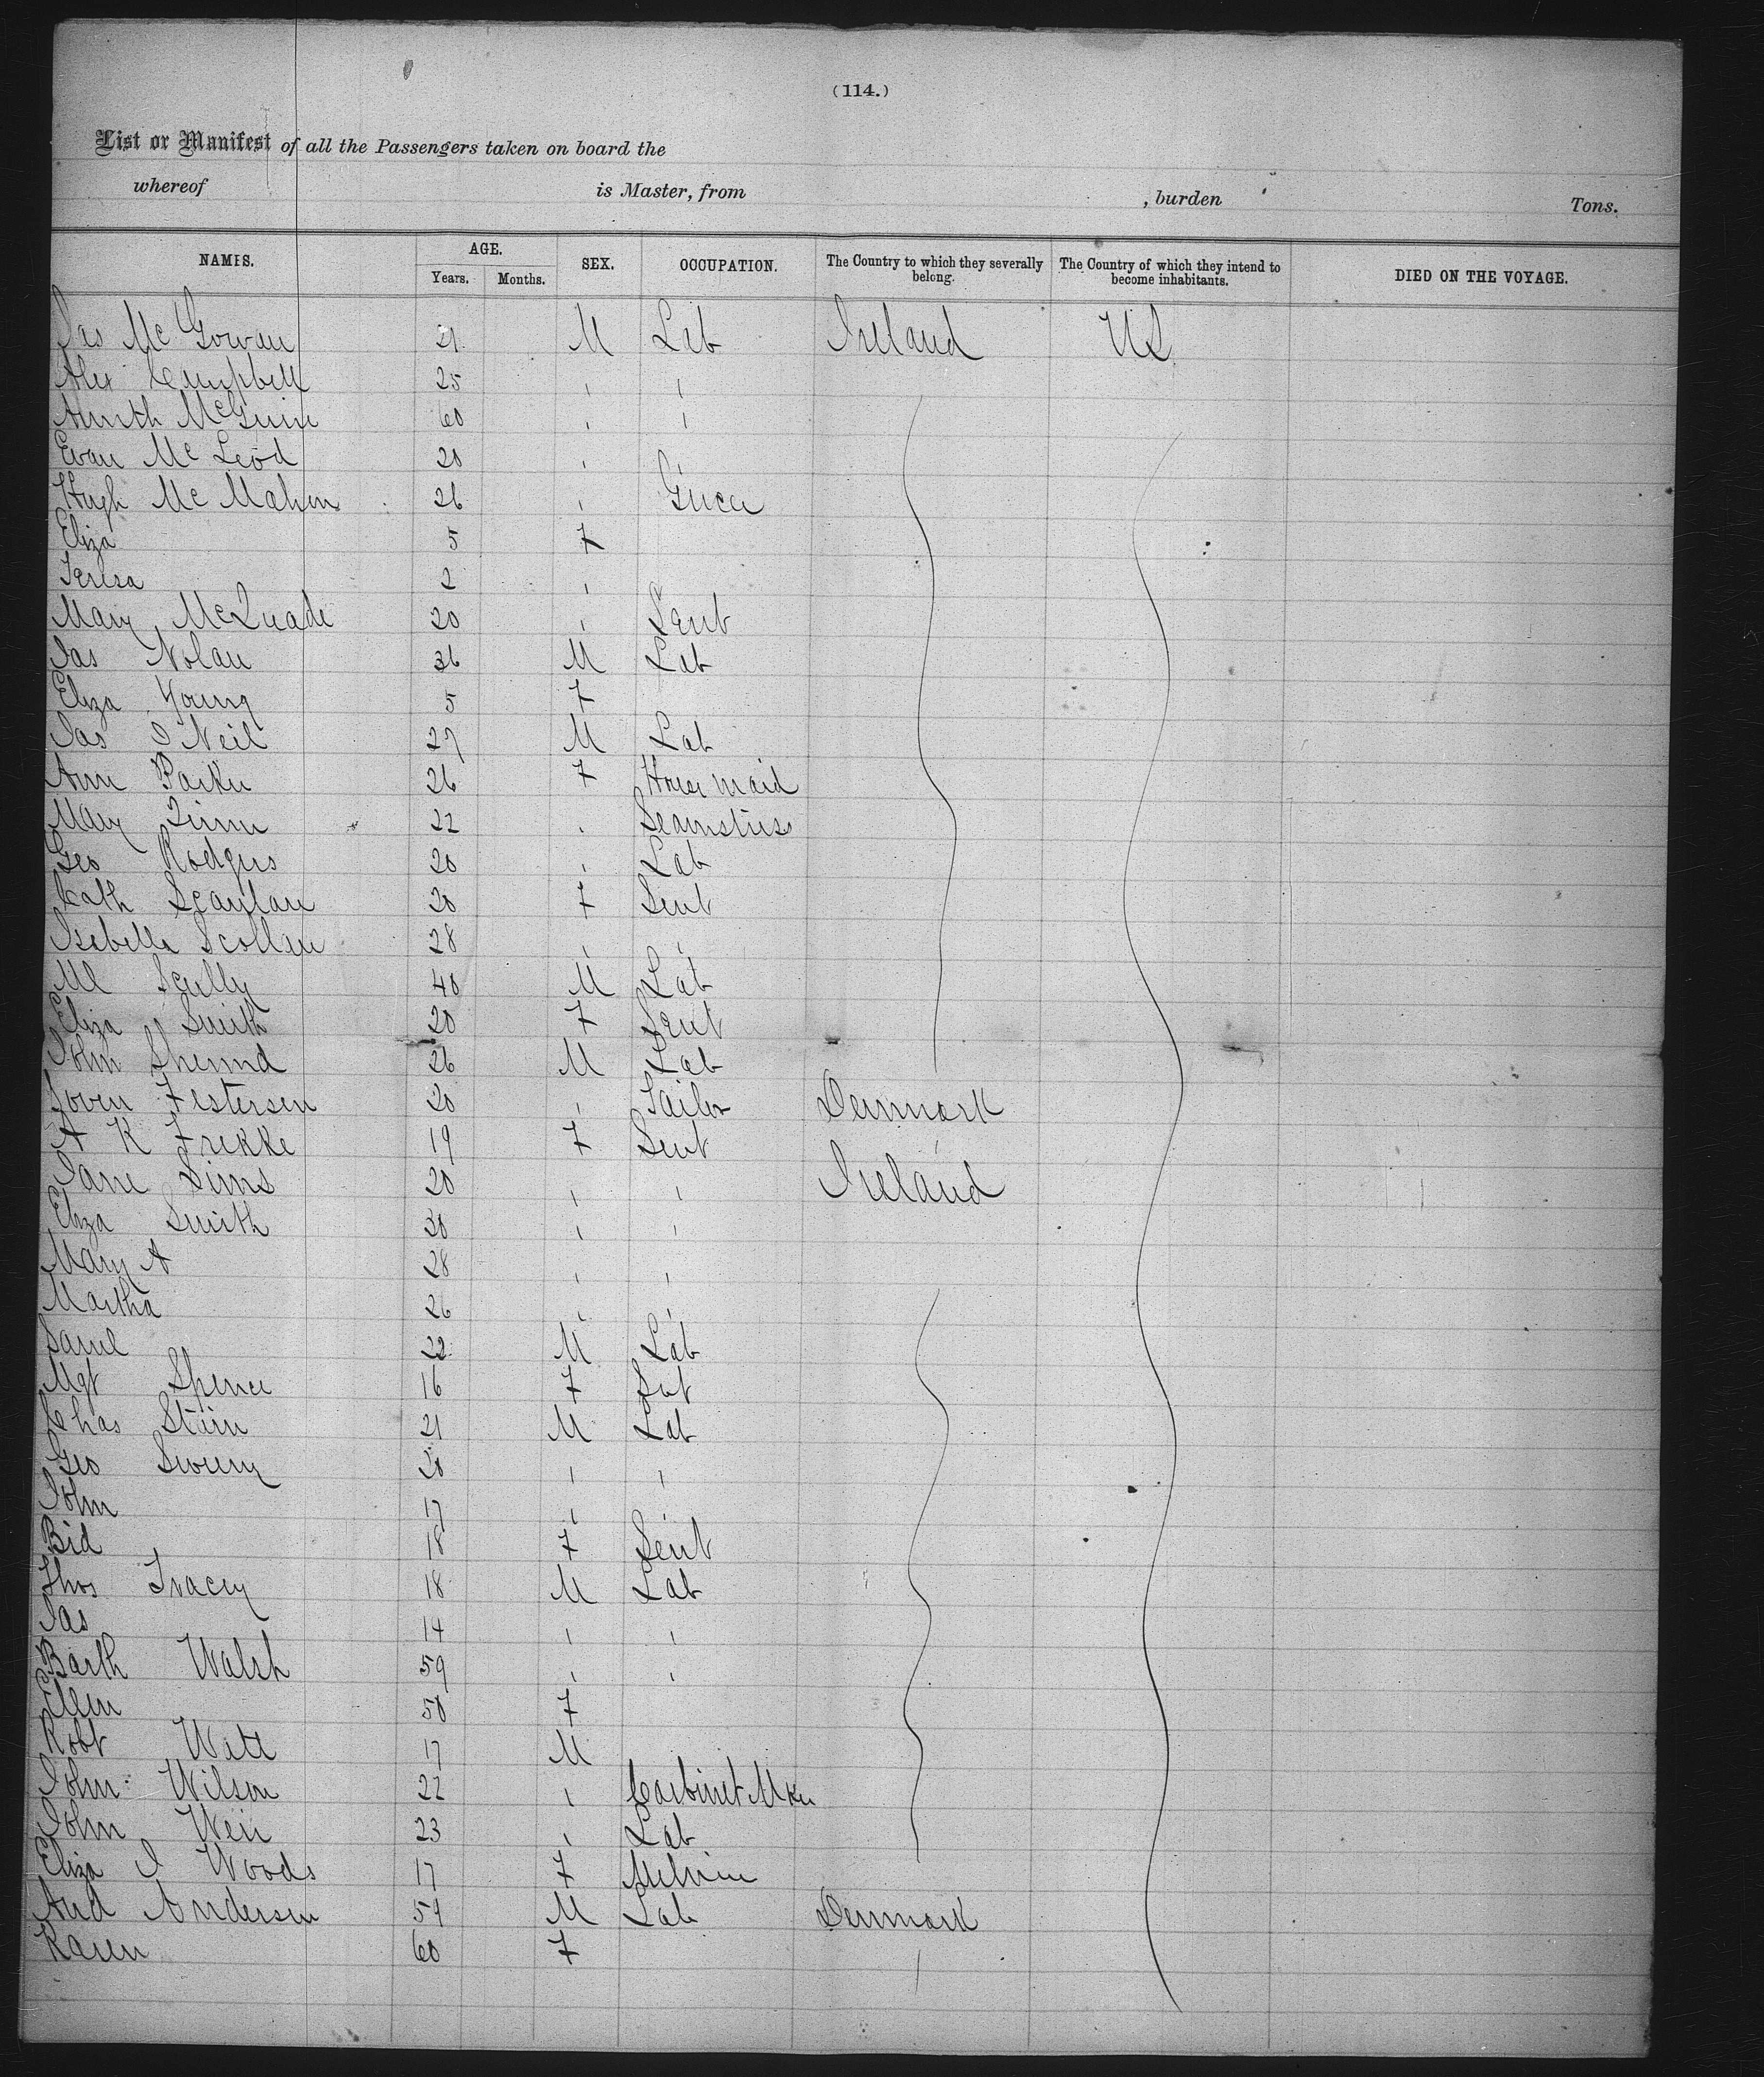 (114.)
List or Manifest of all the Passengers taken on board the
whereof is Master, from , burden Tons.
NAMES. AGE. SEX. OCCUPATION. The Country to which they severally belong. The Country of which they intend to become inhabitants. DIED ON THE VOYAGE.
Years. Months.
Jas McGowan 21 M Lab Ireland US
Alex Campbell 25 " "
McGuire 60 " "
Evan McLeod 20 " "
Hugh McMahon 26 " Grocer
Eliza 5 F
Teresa 2 "
Mary McQuade 20 " Servt
Jas Nolan 36 M Lab
Eliza Young 5 F
Jas O'Neil 27 M Lab
Ann Parker 26 F House maid
Mary Quinn 22 " Seamstress
Geo Rodgers 20 " Lab
Cath Scanlan 20 F Servt
Isabella Scollan 28 " "
Ml Scully 40 M Lab
Eliza J Smith 20 F Servt
John 26 M Lab
Festersen 20 " Tailor Denmark
A K Frekke 19 F Servt "
Jane Sims 20 " " Ireland
Eliza Smith 20 " "
Mary A 28 " "
Martha 26 " "
Saml 22 M Lab
Mgt Spence 16 F Svt
Chas 21 M Lab
Geo Sweeny 20 " "
John 17 " "
Bid 18 F Servt
Thos Tracey 18 M Lab
Jas 14 " "
Barth Walsh 59 " "
Ellen 50 F
Robt Watt 17 M
John Wilson 22 " Carbinet Mker
John Weir 23 " Lab
Eliza J Woods 17 F
And Andersen 59 M Lab Denmark
Karen 60 F "